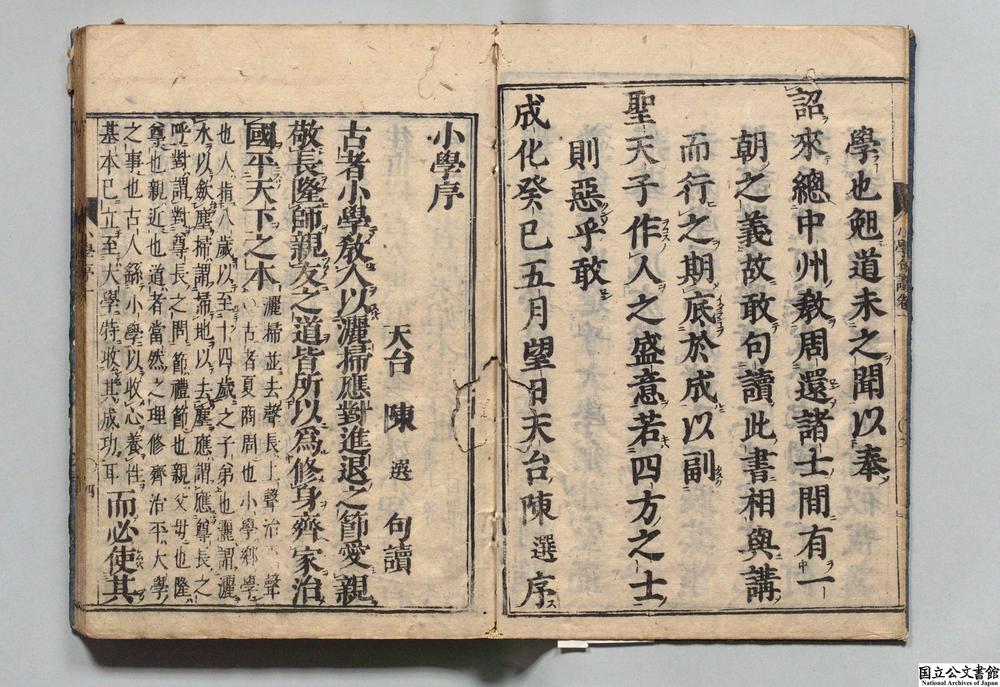 學也兢道未之聞以奉
詔來總中州教周還諸士間有一
朝之義故敢句讀此書相與講
而行之期底於成以副
聖天子作人之盛意若四方之士
則惡乎敢
成化癸巳五月望日天台陳選序
小學序
天台 陳 選 句讀
古者小學教人以灑掃應對進退之節愛親
敬長隆師親友之道皆所以爲修身齊家治
國平天下之本 灑掃並去聲長上聲治 聲
古者夏商周也小學鄉學
也人指八歲以至十四歲之子弟也灑謂灑
水以斂塵掃謂掃地以去塵應謂應尊長之
呼對謂對尊長之問節禮節也親父母也隆
尊也親近也道者當然之理修齊治平大學
之事也古人繇小學以收心養性
基本已立至大學特收其成功耳 而必使其
国立公文書館
National Archives of Japan